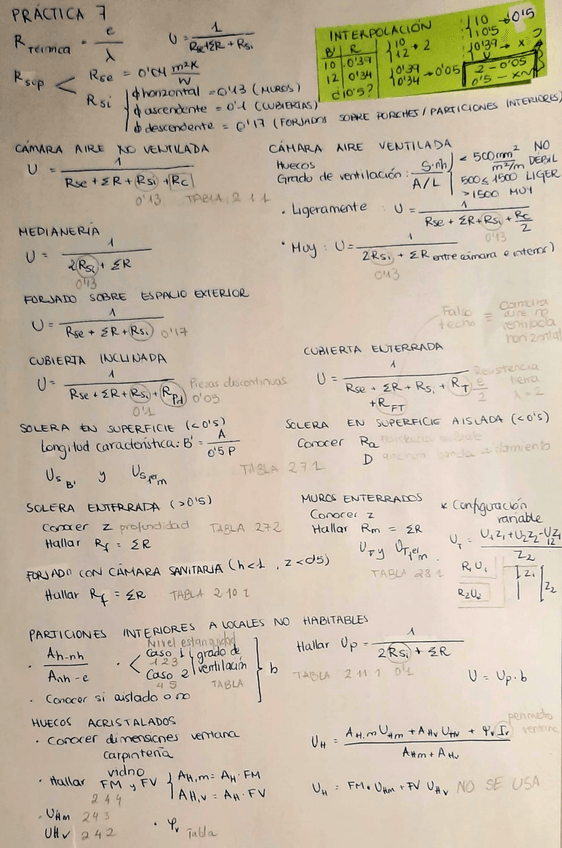 PRÁCTICA 7
R térmica = e/λ
U = 1/(Rse+ΣR+Rsi)
Rsup < Rse = 0'04 m²K/W
Rsi { φ horizontal = 0'13 (MUROS)
φ ascendente = 0'1 (CUBIERTAS)
φ descendente = 0'17 (FORJADOS SOBRE PORCHES/PARTICIONES INTERIORES)
INTERPOLACIÓN
B' R
10 0'39
12 0'34
¿10'5?
{10 12 → 2
{0'39 0'34 → 0'05
{10 10'5 → 0'5
{0'39 → x
2 - 0'05
0'5 - x
CÁMARA AIRE NO VENTILADA
U = 1/(Rse + ΣR + Rsi + Rc)
0'13 TABLA 2 1 1
CÁMARA AIRE VENTILADA
Huecos
Grado de ventilación: S.nh/(A/L) { < 500 mm²/m NO DEBIL
500 ≤ 1500 LIGER
> 1500 MUY
· Ligeramente: U = 1/(Rse + ΣR + Rsi + Rc/2)
0'13
· Muy: U = 1/(2Rsi + ΣR entre cámara e interior)
0'13
MEDIANERÍA
U = 1/(2Rsi + ΣR)
0'13
FORJADO SOBRE ESPACIO EXTERIOR
U = 1/(Rse + ΣR + Rsi) 0'17
Falso techo = Cámara aire no ventilada horizontal
CUBIERTA INCLINADA
U = 1/(Rse + ΣR + Rsi + Rpd) Piezas discontinuas
0'1 0'09
CUBIERTA ENTERRADA
U = 1/(Rse + ΣR + Rsi + RT + RFT)
Resistencia tierra
λ = 2
SOLERA EN SUPERFICIE (<0'5)
Longitud característica: B' = A/0'5P
Us B' y Us perm
TABLA 2 7 1
SOLERA EN SUPERFICIE AISLADA (<0'5)
Conocer Ra
D banda aislamiento
SOLERA ENTERRADA (>0'5)
Conocer z profundidad TABLA 2 7 2
Hallar Rf = ΣR
MUROS ENTERRADOS
Conocer z
Hallar Rm = ΣR
UT y UT perm
TABLA 2 8 1
* Configuración variable
UT = (U1Z1 + U2Z2 - U12Z1)/Z2
R1U1
R2U2
Z1
Z2
FORJADO CON CÁMARA SANITARIA (h<1, z<0'5)
Hallar Rf = ΣR TABLA 2 10 1
PARTICIONES INTERIORES A LOCALES NO HABITABLES
· Ah-nh/Anh-e · < Nivel estanquidad
Caso 1 1 2 3
Caso 2 4 5
} grado de ventilación } b
TABLA
· Conocer si aislado o no
Hallar Up = 1/(2Rsi + ΣR)
TABLA 2 11 1 0'1
U = Up·b
HUECOS ACRISTALADOS
· Conocer dimensiones ventana
carpintería
vidrio
· Hallar FM y FV { AH,m = AH·FM
AH,v = AH·FV
2 4 4
· UHm 2 4 3
UHv 2 4 2
· Ψv Tabla
UH = (AH,m UHm + AHv UHv + Ψv Iv)/(AHm + AHv)
UH = FM·UHm + FV UHv NO SE USA